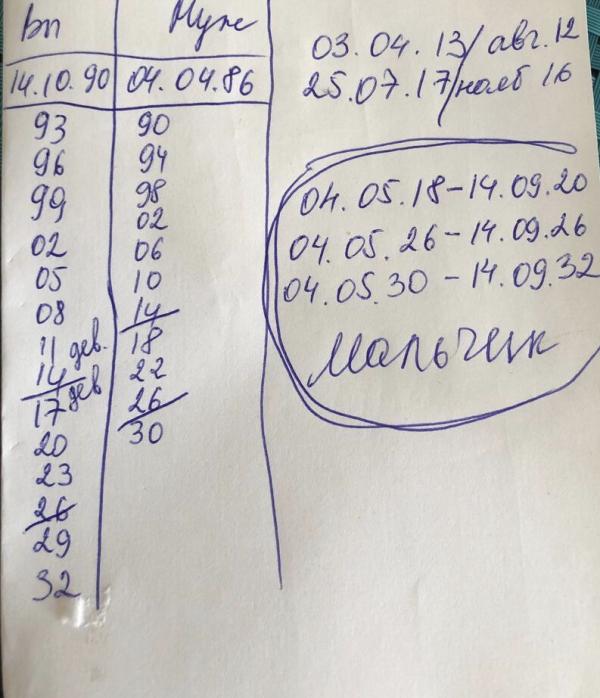 Вп Муж
14.10.90 04.04.86
93 90
96 94
99 98
02 02
05 06
08 10
11 дев. 14
14 дев 18
17 22
20 26
23 30
26
29
32
03.04.13/авг.12
25.07.17/нояб 16
04.05.18-14.09.20
04.05.26-14.09.26
04.05.30-14.09.32
Мальчик